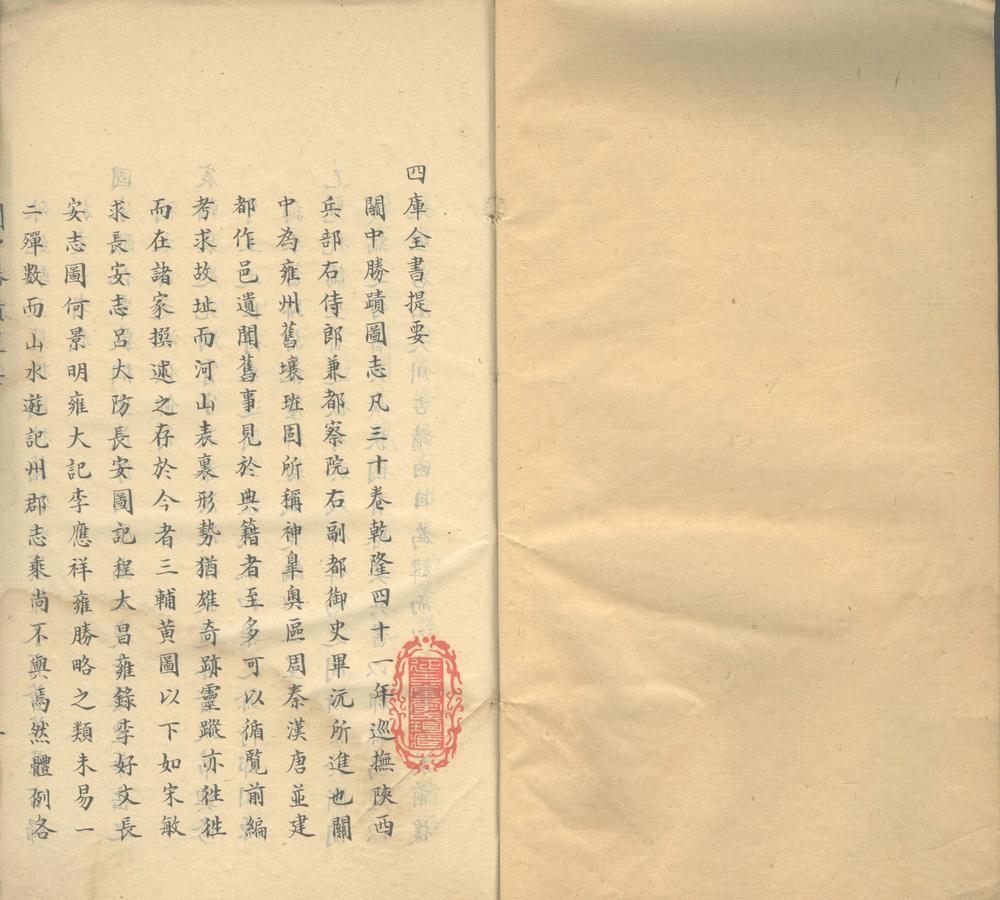 四庫全書提要
關中勝蹟圖志凡三十卷乾隆四十一年巡撫陝西
兵部右侍郎兼都察院右副都御史畢沅所進也關
中為雍州舊壤班固所稱神臯奧區周秦漢唐並建
都作邑遺聞舊事見於典籍者至多可以循覽前編
考求故址而河山表裏形勢猶雄奇跡靈蹤亦往往
而在諸家撰述之存於今者三輔黃圖以下如宋敏
求長安志呂大防長安圖記程大昌雍錄李好文長
安志圖何景明雍大記李應祥雍勝略之類未易一
二殫數而山水遊記州郡志乘尚不與焉然體例各